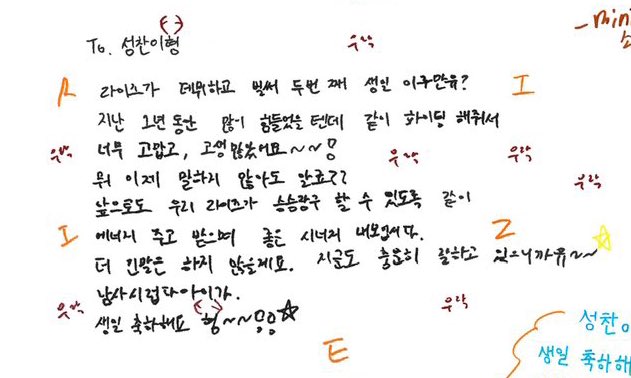 -mini
To. 성찬이형
우락
R 라이즈가 데뷔하고 벌써 두번 째 생일 이구만유? I
지난 1년 동안 많이 힘들었을 텐데 같이 화이팅 해줘서
우락 너무 고맙고, 고생 많았어요~~!! 우락 우락
뭐 이제 말하지 않아도 알죠??
우락
앞으로도 우리 라이즈가 승승장구 할 수 있도록 같이
I 에너지 주고 받으며 좋은 시너지 내보입시다. Z
더 긴말은 하지 않을게요. 지금도 충분히 잘하고 있으니까유~~
남사시럽다아이가.
우락 우락
생일 축하해요 형~~!!
E
성찬
생일 축하해